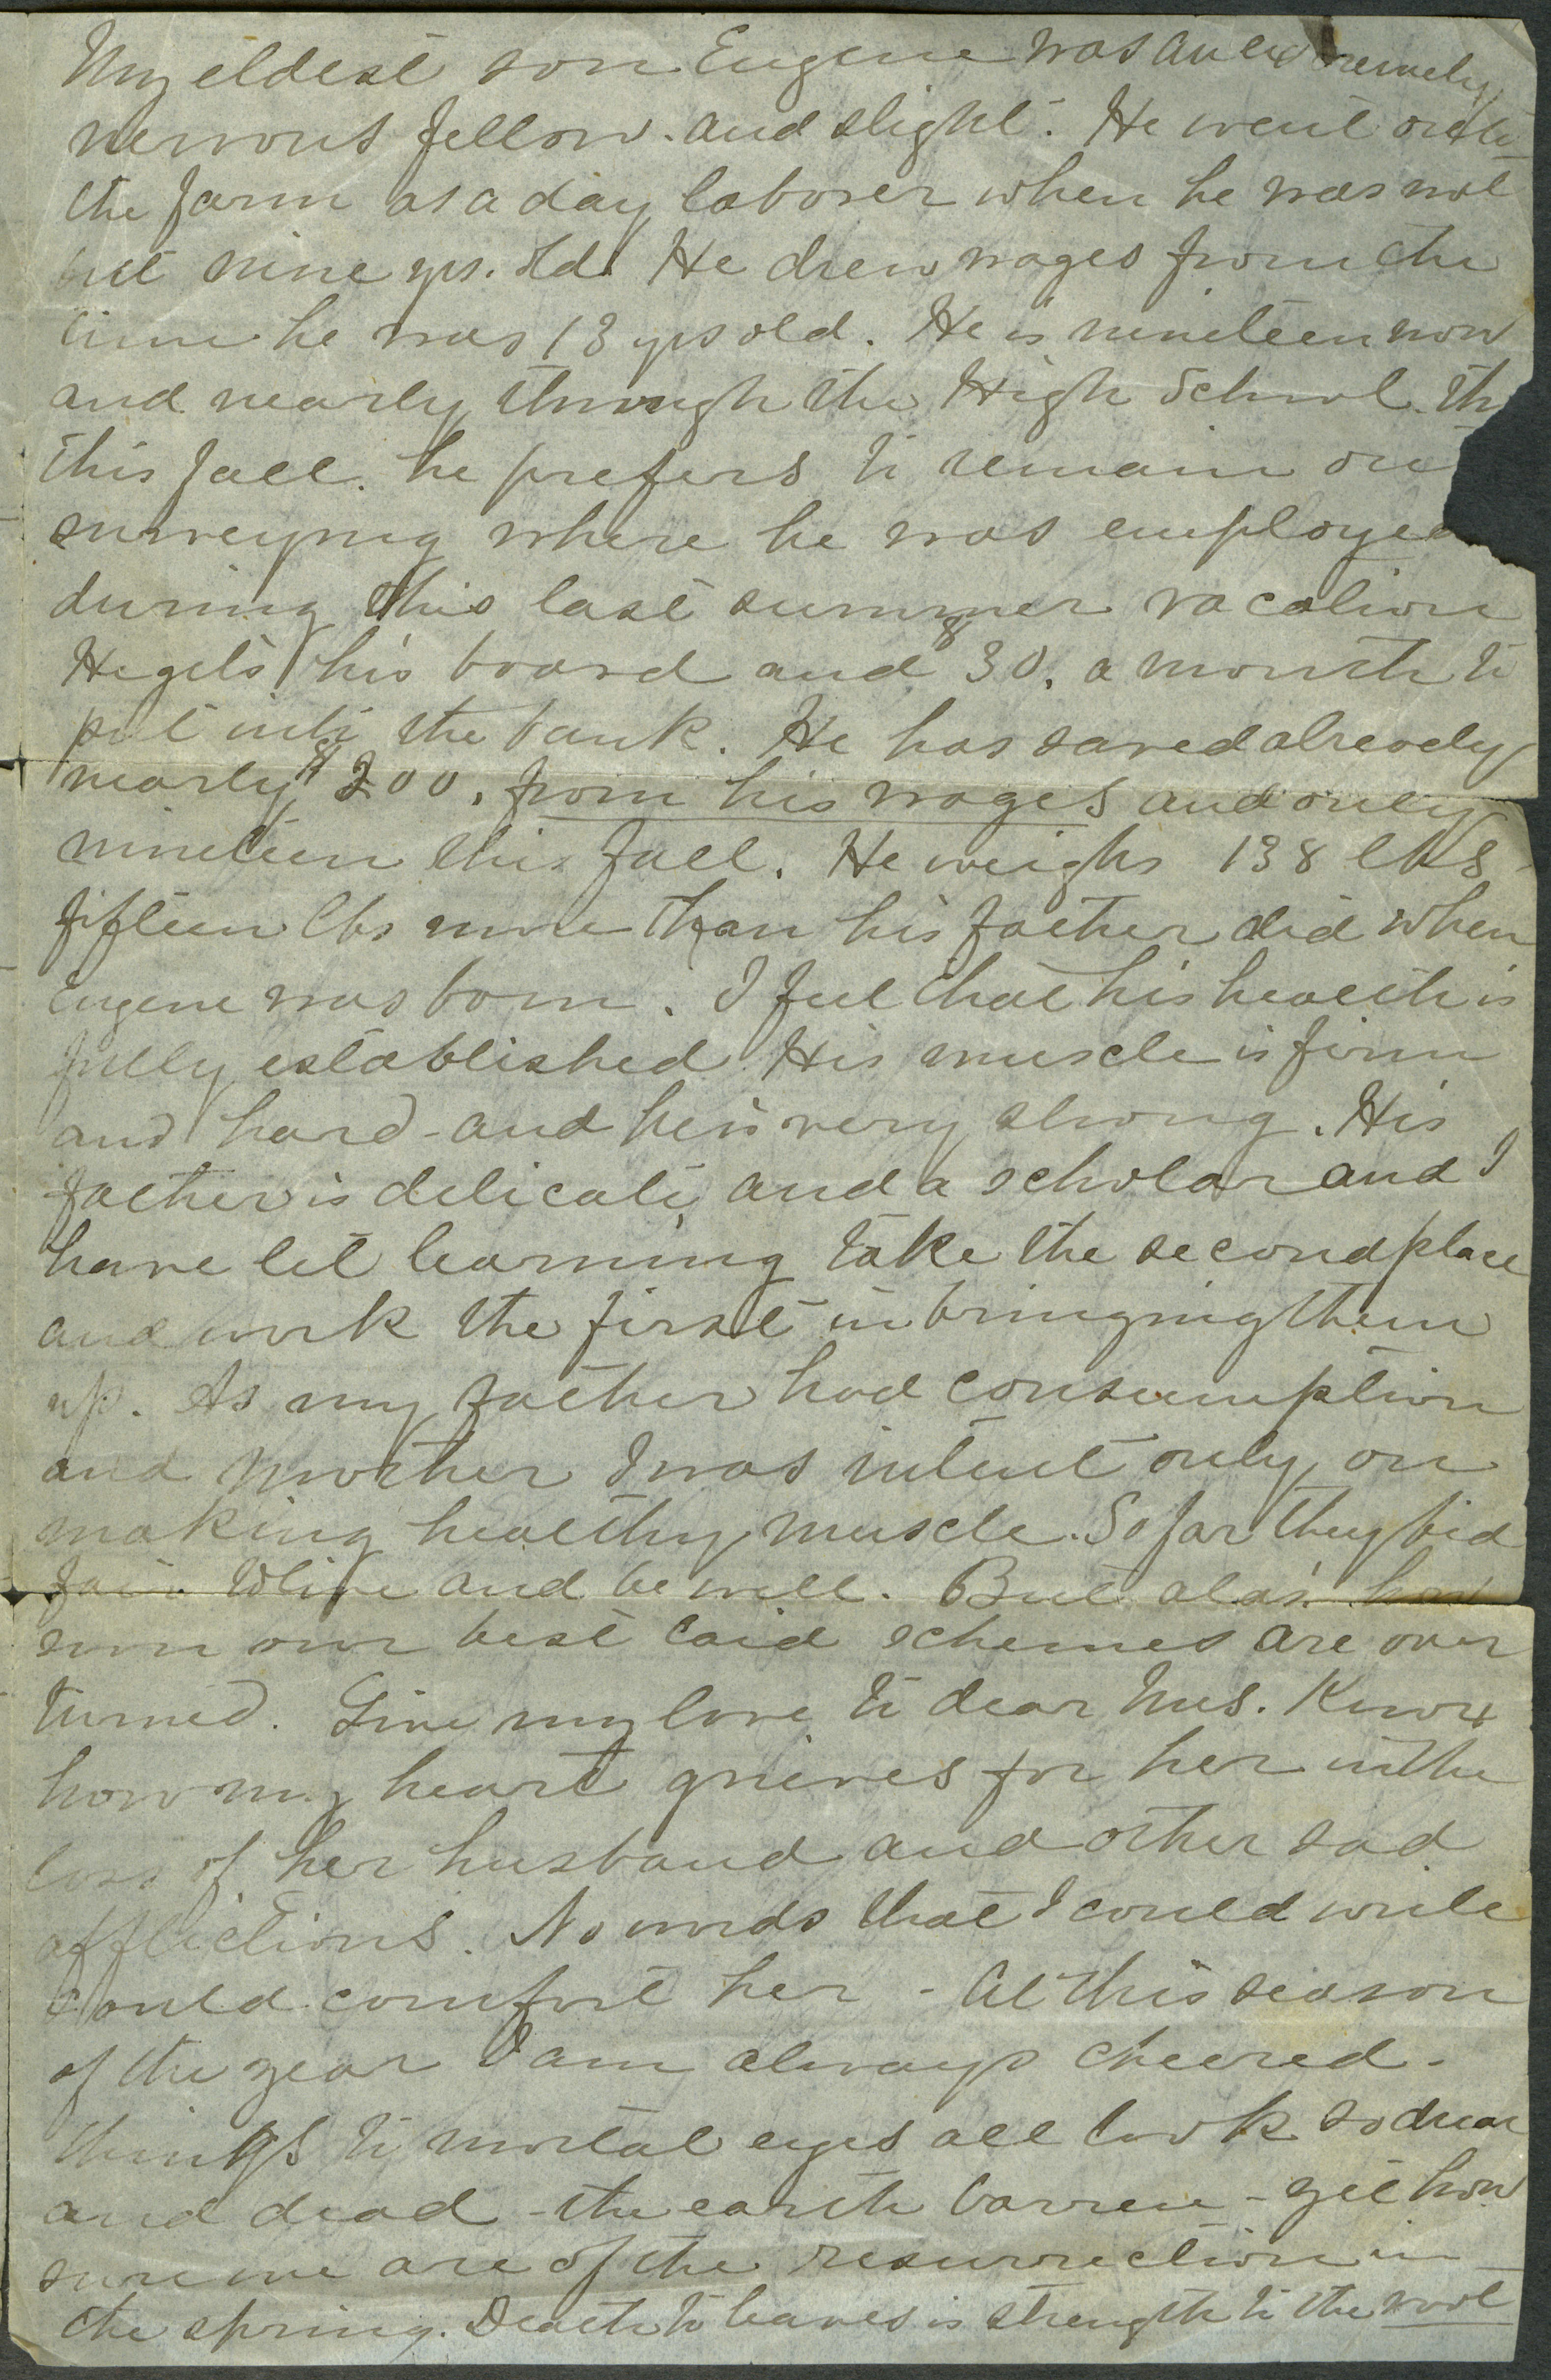 My eldest son Eugene was an extremely
nervous fellow. and slight. He went onto
the farm as a day laborer when he was not
but nine yrs. old. He drew wages from the
time he was 13 yrs old. He is nineteen now
and nearly through the High School. th
this fall. he prefers to remain out
surveying where he was employed
during this last summer vacation
He gets his board and $30. a month to
put into the bank. He has saved already
nearly $200. from his wages and only
nineteen this fall. He weighs 138 lbs
fifteen lbs more than his father did when
Eugene was born. I feel that his health is
fully established. His muscle is firm
and hard - and he is very strong. His
father is delicate and a scholar and I
have let learning take the second place
and work the first in bringing them
up. As my father had consumption
and mother I was intent only on
making healthy muscle. So far they bid
fair to live and be well. But alas! how
soon our best laid schemes are over
turned. Give my love to dear Mrs. Knox
how my heart grieves for her in the
loss of her husband and other sad
afflictions. No words that I could write
could comfort her - At this season
of the year I am always cheered -
things to mortal eyes all look so drear
and dead - the earth barren - yet how
sure we are of the resurrection in
the spring. Death to leaves is strength to the root